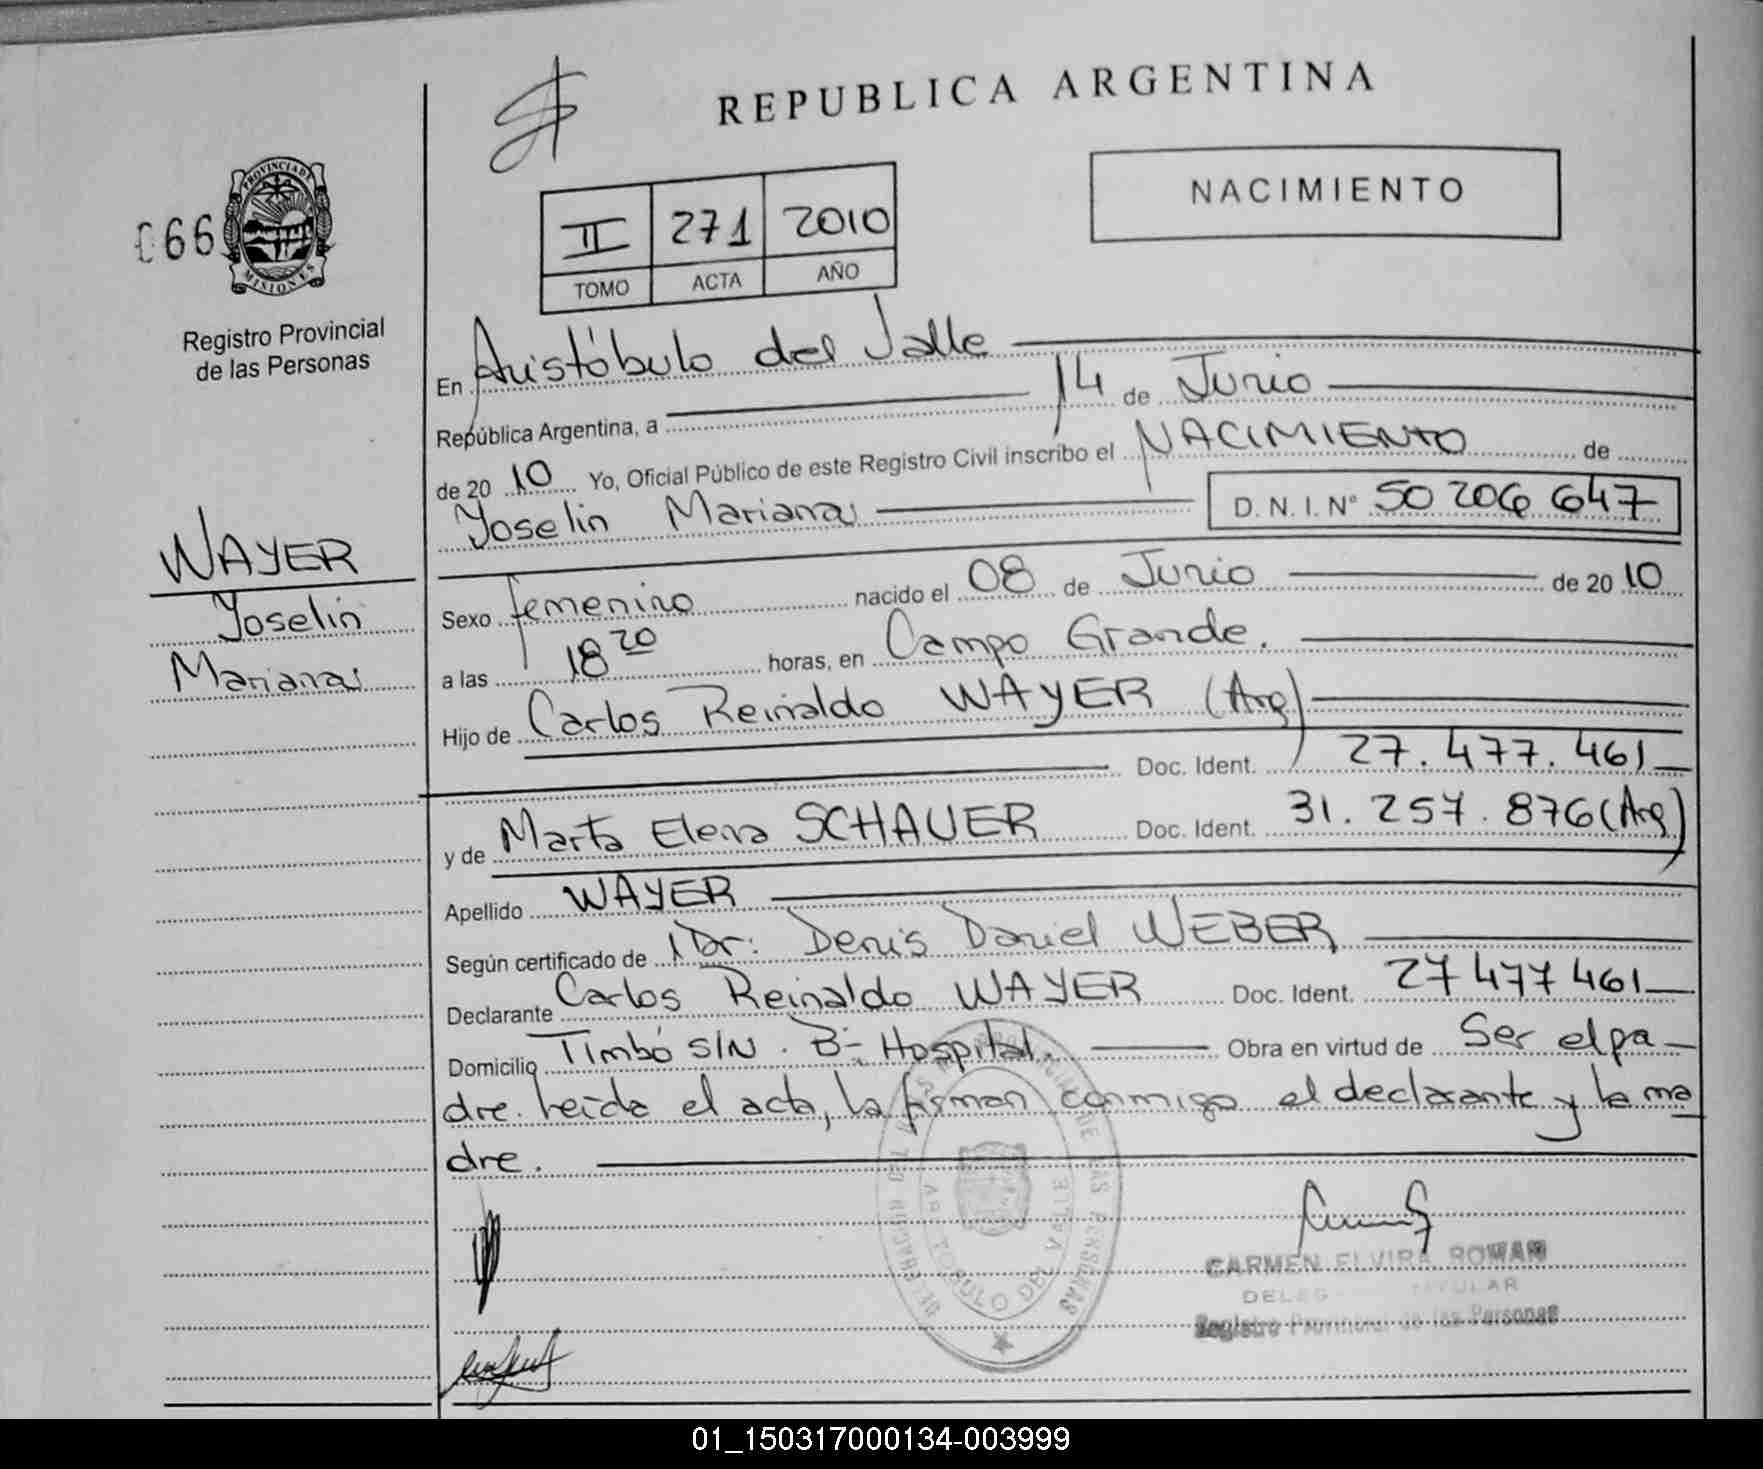 REPUBLICA ARGENTINA
NACIMIENTO
066
PROVINCIA DE
MISIONES
Registro Provincial
de las Personas
II 271 2010
TOMO ACTA AÑO
En Aristóbulo del Valle
República Argentina, a 14 de Junio
de 20 10 Yo, Oficial Público de este Registro Civil inscribo el NACIMIENTO de
Yoselin Mariana D.N.I. Nº 50 206 647
WAYER
Yoselin
Mariana
Sexo femenino nacido el 08 de Junio de 20 10
a las 18 20 horas, en Campo Grande.
Hijo de Carlos Reinaldo WAYER (Arg)
Doc. Ident. 27.477.461
y de Marta Elena SCHAUER Doc. Ident. 31.257.876 (Arg)
Apellido WAYER
Según certificado de Dr: Denis Daniel WEBER
Declarante Carlos Reinaldo WAYER Doc. Ident. 27 477 461
Domicilio Timbó S/N. Bº Hospital. Obra en virtud de Ser el pa
dre. Leída el acta, la firman conmigo el declarante y la ma
dre.
CARMEN ELVIRA ROMAN
TITULAR
Registro Provincial de las Personas
DE LAS PERSONAS
DEL VALLE
01_150317000134-003999